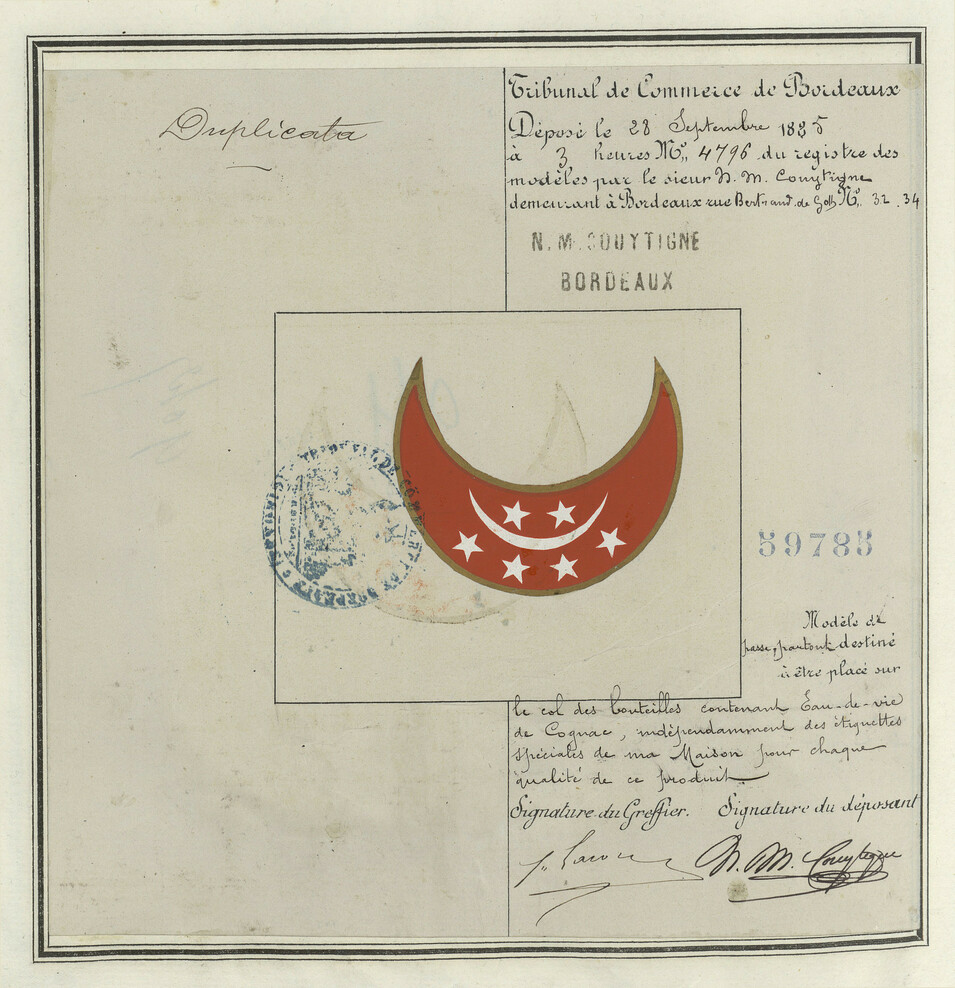 Duplicata
Tribunal de Commerce de Bordeaux
Déposé le 28 Septembre 1885
à 3 heures Nº 4796 du registre des
modèles par le sieur N. M. Couytigne
demeurant à Bordeaux rue Bertrand de Goth Nº 32.34
N. M. COUYTIGNE
BORDEAUX
59785
Modèle de
passe-partout destiné
à être placé sur
le col des bouteilles contenant Eau-de-vie
de Cognac, indépendamment des étiquettes
spéciales de ma Maison pour chaque
qualité de ce produit
Signature du Greffier. Signature du déposant
N. M. Couytigne